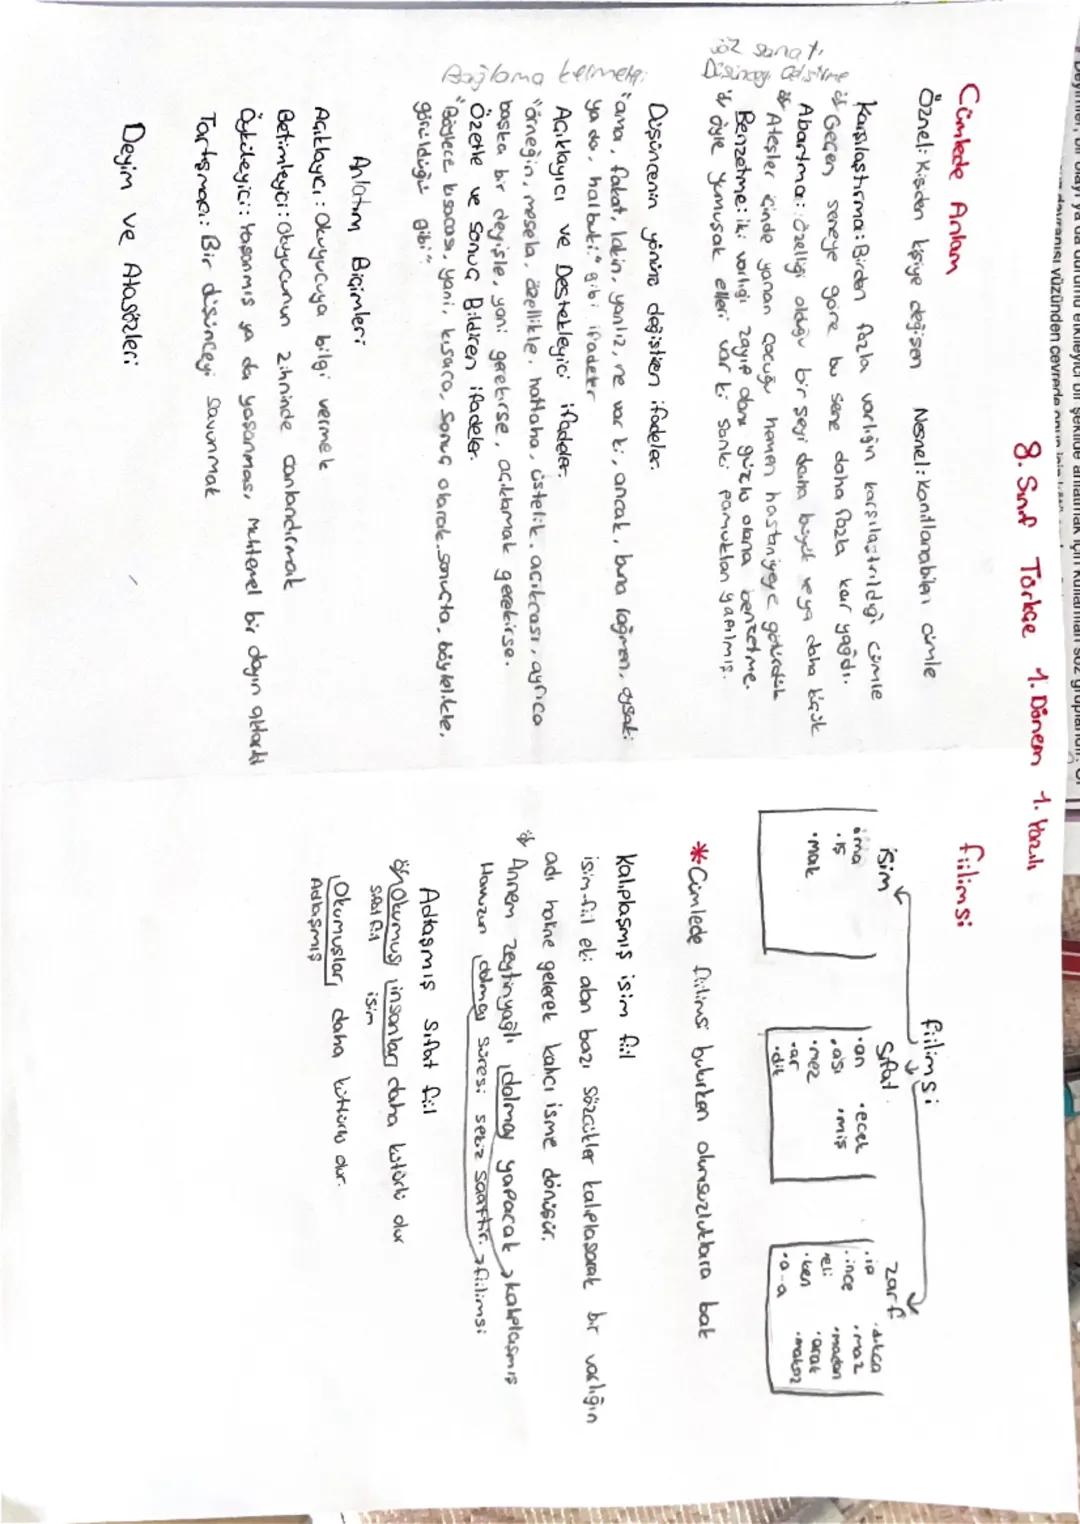 8. Sınıf Türkçe 1. Dönem 1. Yazılı
Cümlede Anlam
Öznel: Kişiden kişiye değişen Nesnel: Kanıtlanabilen cümle
Karşılaştırma: Birden fazla varlığın karşılaştırıldığı cümle
Geçen seneye göre bu sene daha fazla kar yağdı.
Abartma: Özelliği olduğu bir şeyi daha büyük veya daha küçük
Ateşler içinde yanan çocuğu hemen hastaneye götürdük
Benzetme: iki varlığı zayıf olanı güçlü olana benzetme.
öyle yumuşak elleri var ki sanki pamuktan yapılmış.
söz sanatı
Düşünceyi Geliştirme
Düşüncenin yönünü değiştiren ifadeler.
"ama, fakat, lakin, yanlız, ne var ki, ancak, buna rağmen, oysaki
ya da, halbuki" gibi ifadeler
Açıklayıcı ve Destekleyici ifadeler.
"örneğin, mesela, özellikle, hattaha, üstelik, açıkcası, ayrıca
başka bir deyişle, yani gerekirse, açıklamak gerekirse.
Özetle ve Sonuç Bildiren ifadeler.
"Böylece kısacası, yani, kısaca, sonuç olarak, sonuçta, böylelikle,
görüldüğü gibi"
Bağlama kelimeleri
Anlatım Biçimleri
Açıklayıcı: Okuyucuya bilgi vermek
Betimleyici: Okuyucunun zihninde canlandırmak
Öyküleyici: Yaşanmış ya da yaşanması muhtemel bir olayın aktarıldı
Tartışmacı: Bir düşünceyi savunmak
Deyim ve Atasözleri
fiilimsi
fiilimsi
isim sıfat zarf
ma
•iş
•mak
•an •ecek
•ası •miş
•mez
•ar
•dik
•ip •dıkca
•ince •maz
•eli •madan
•ken •arak
•a-a •maksız
*Cümlede fiilimsi bulurken olumsuzluklara bak
Kalıplaşmış isim fiil
isim-fiil eki alan bazı sözcükler kalıplaşarak bir varlığın
adı haline gelerek kalıcı isme dönüşür.
Annem zeytinyağlı dolma yapacak → kalıplaşmış
Havuzun dolması süresi sekiz saattir. → fiilimsi
Adlaşmış sıfat fiil
ör Okumuş insanlar daha kültürlü olur
sıfat fiil isim
Okumuşlar daha kültürlü olur.
Adlaşmış